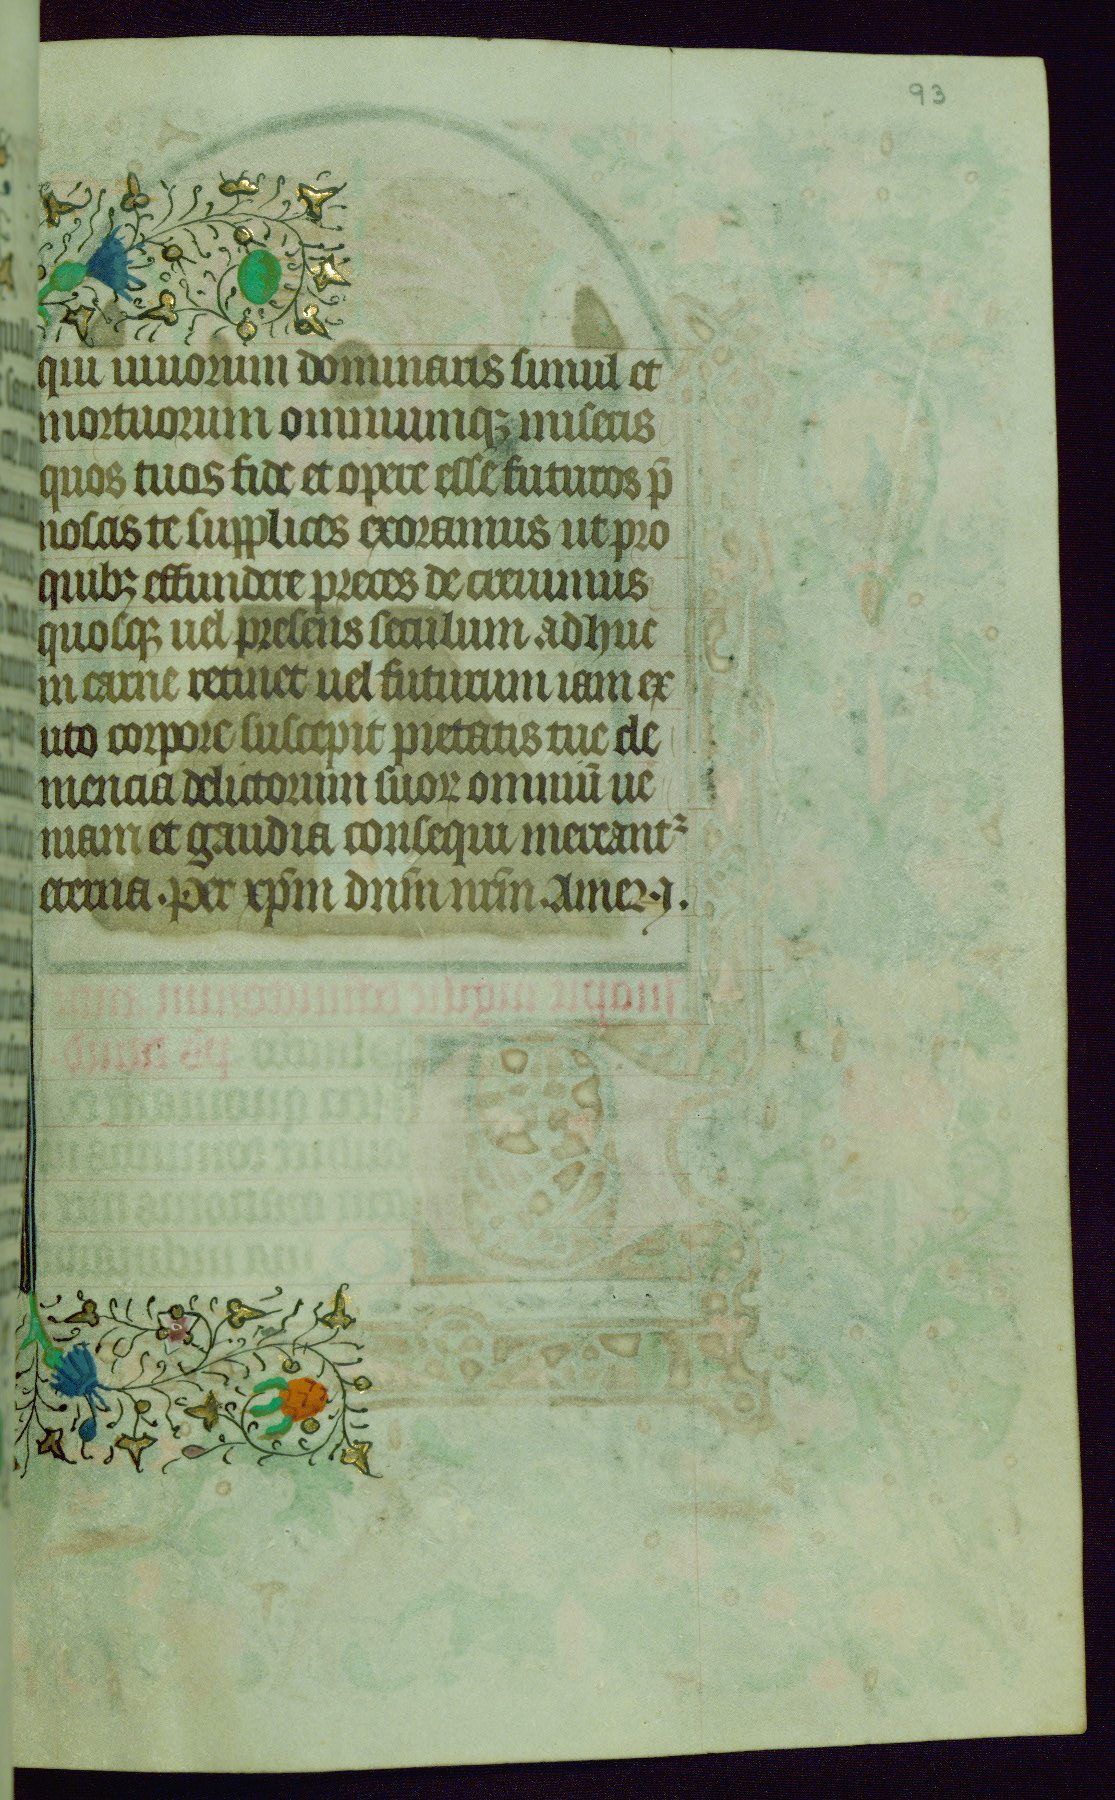 93
qui uiuorum dominaris simul et
mortuorum omniumqꝫ miseris
quos tuos fide et opere esse futuros p̄
noscis te supplices exoramus ut pro
quibꝫ effundere preces decreuimus
quosqꝫ uel presens seculum adhuc
in carne retinet uel futurum iam ex
uto corpore suscepit pietatis tue cle
mencia delictorum suoꝝ omniū ue
niam et gaudia consequi mereantᷣ
eterna. Per xp̄m dn̄m nr̄m. Amen.